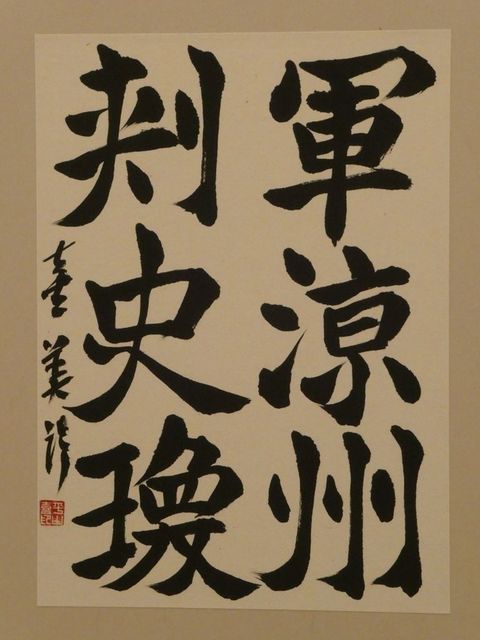 軍涼州
刺史瑍